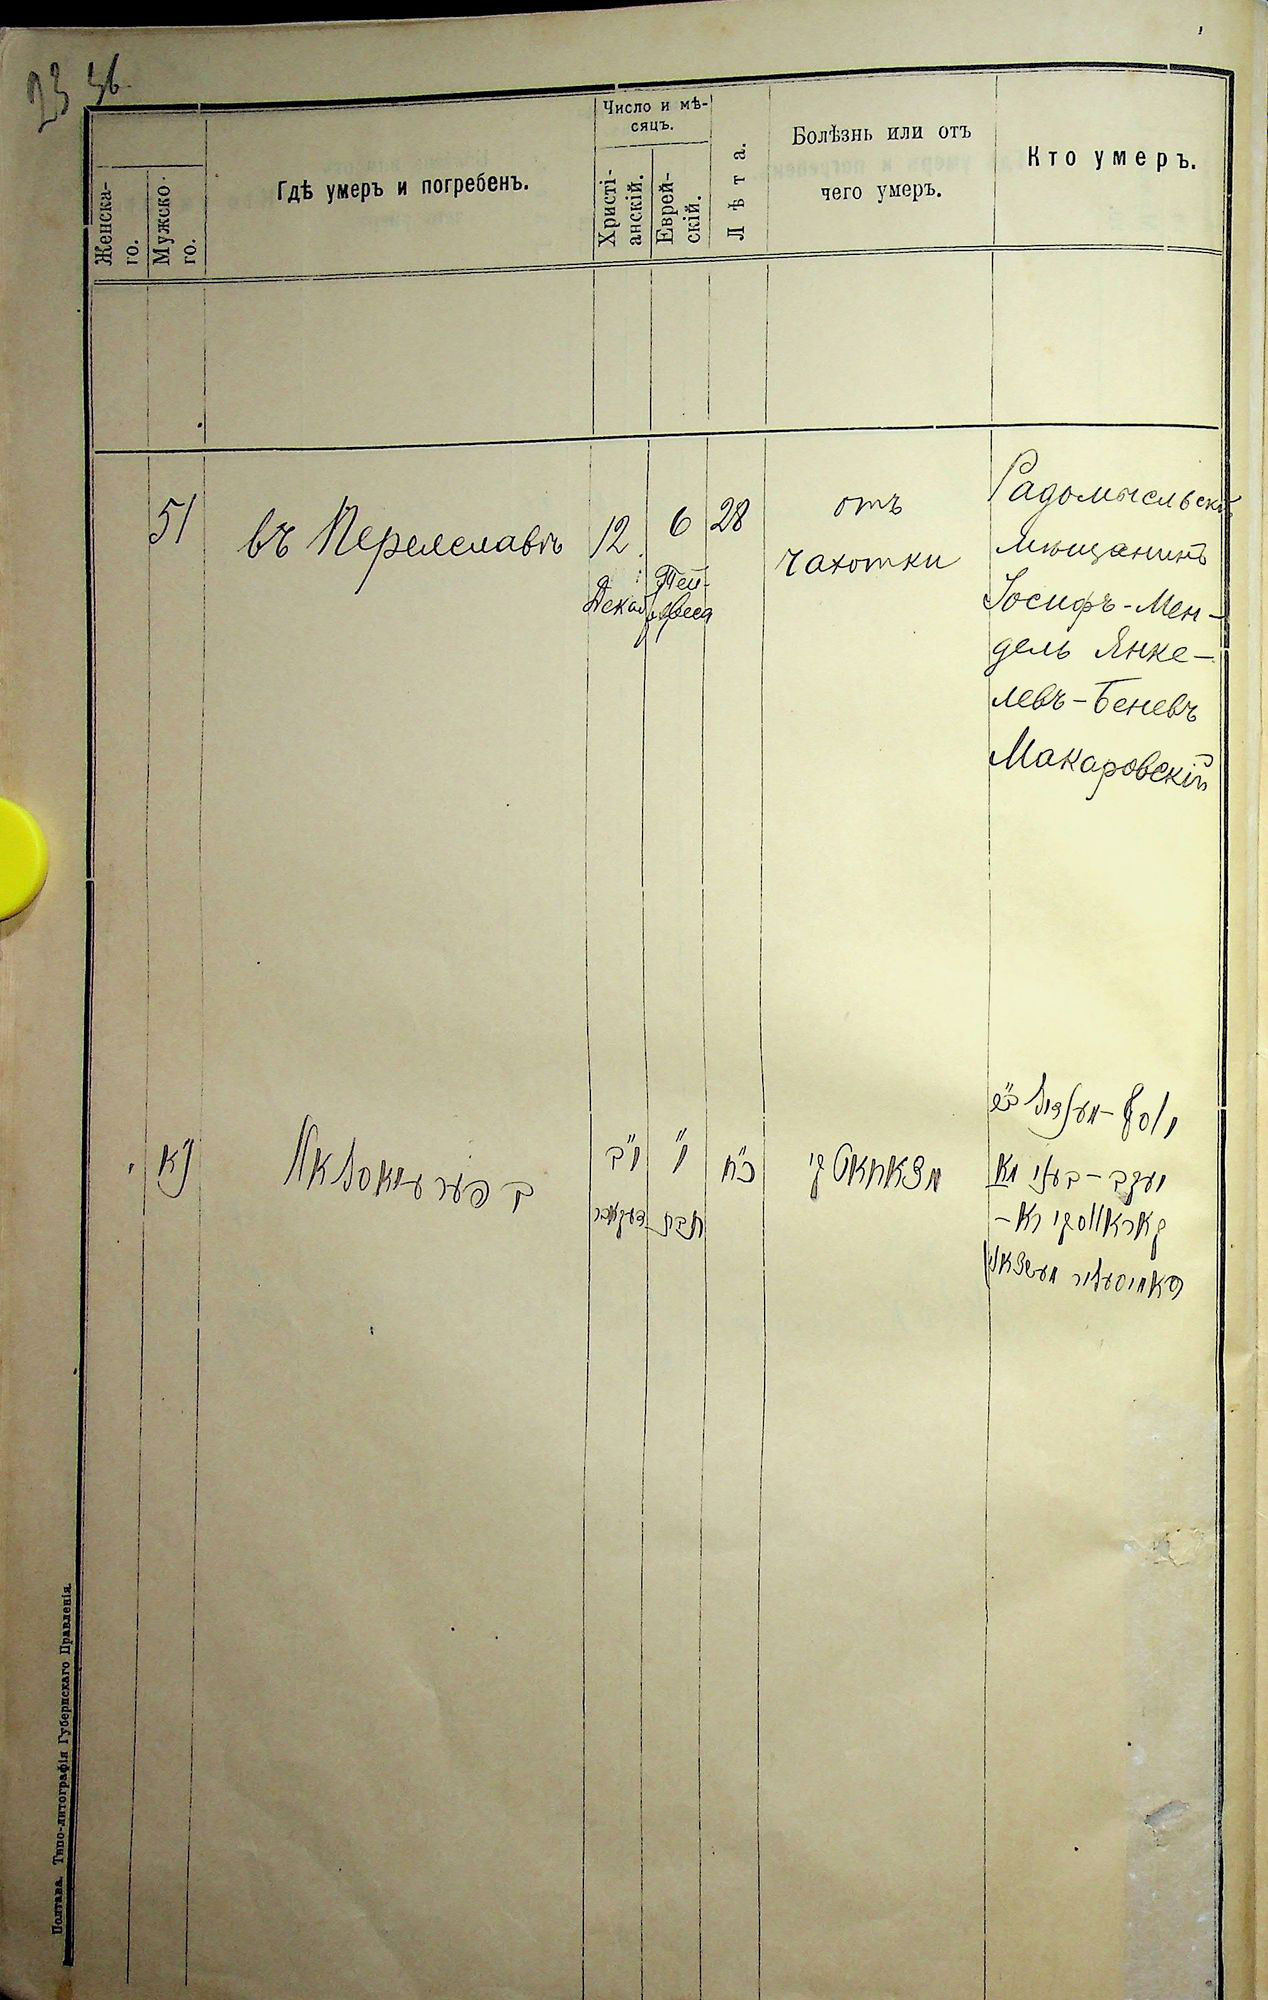 23 36.
Женска-
го.
Мужско-
го.
Гдѣ умеръ и погребенъ.
Число и мѣ-
сяцъ.
Христі-
анскій.
Еврей-
скій.
Лѣта.
Болѣзнь или отъ
чего умеръ.
Кто умеръ.
51
въ Переяславѣ
12
Декабря
6
Тей-
веса
28
отъ
чахотки
Радомысльскій
мѣщанинъ
Іосифъ-Мен-
дель Янке-
левъ-Беневъ
Макаровскій
נ״א
י״ב
דעקאבר
ו״
טבת
כ״ח
יוסף-מענדיל ב״ר
Полтава. Типо-литографія Губернскаго Правленія.